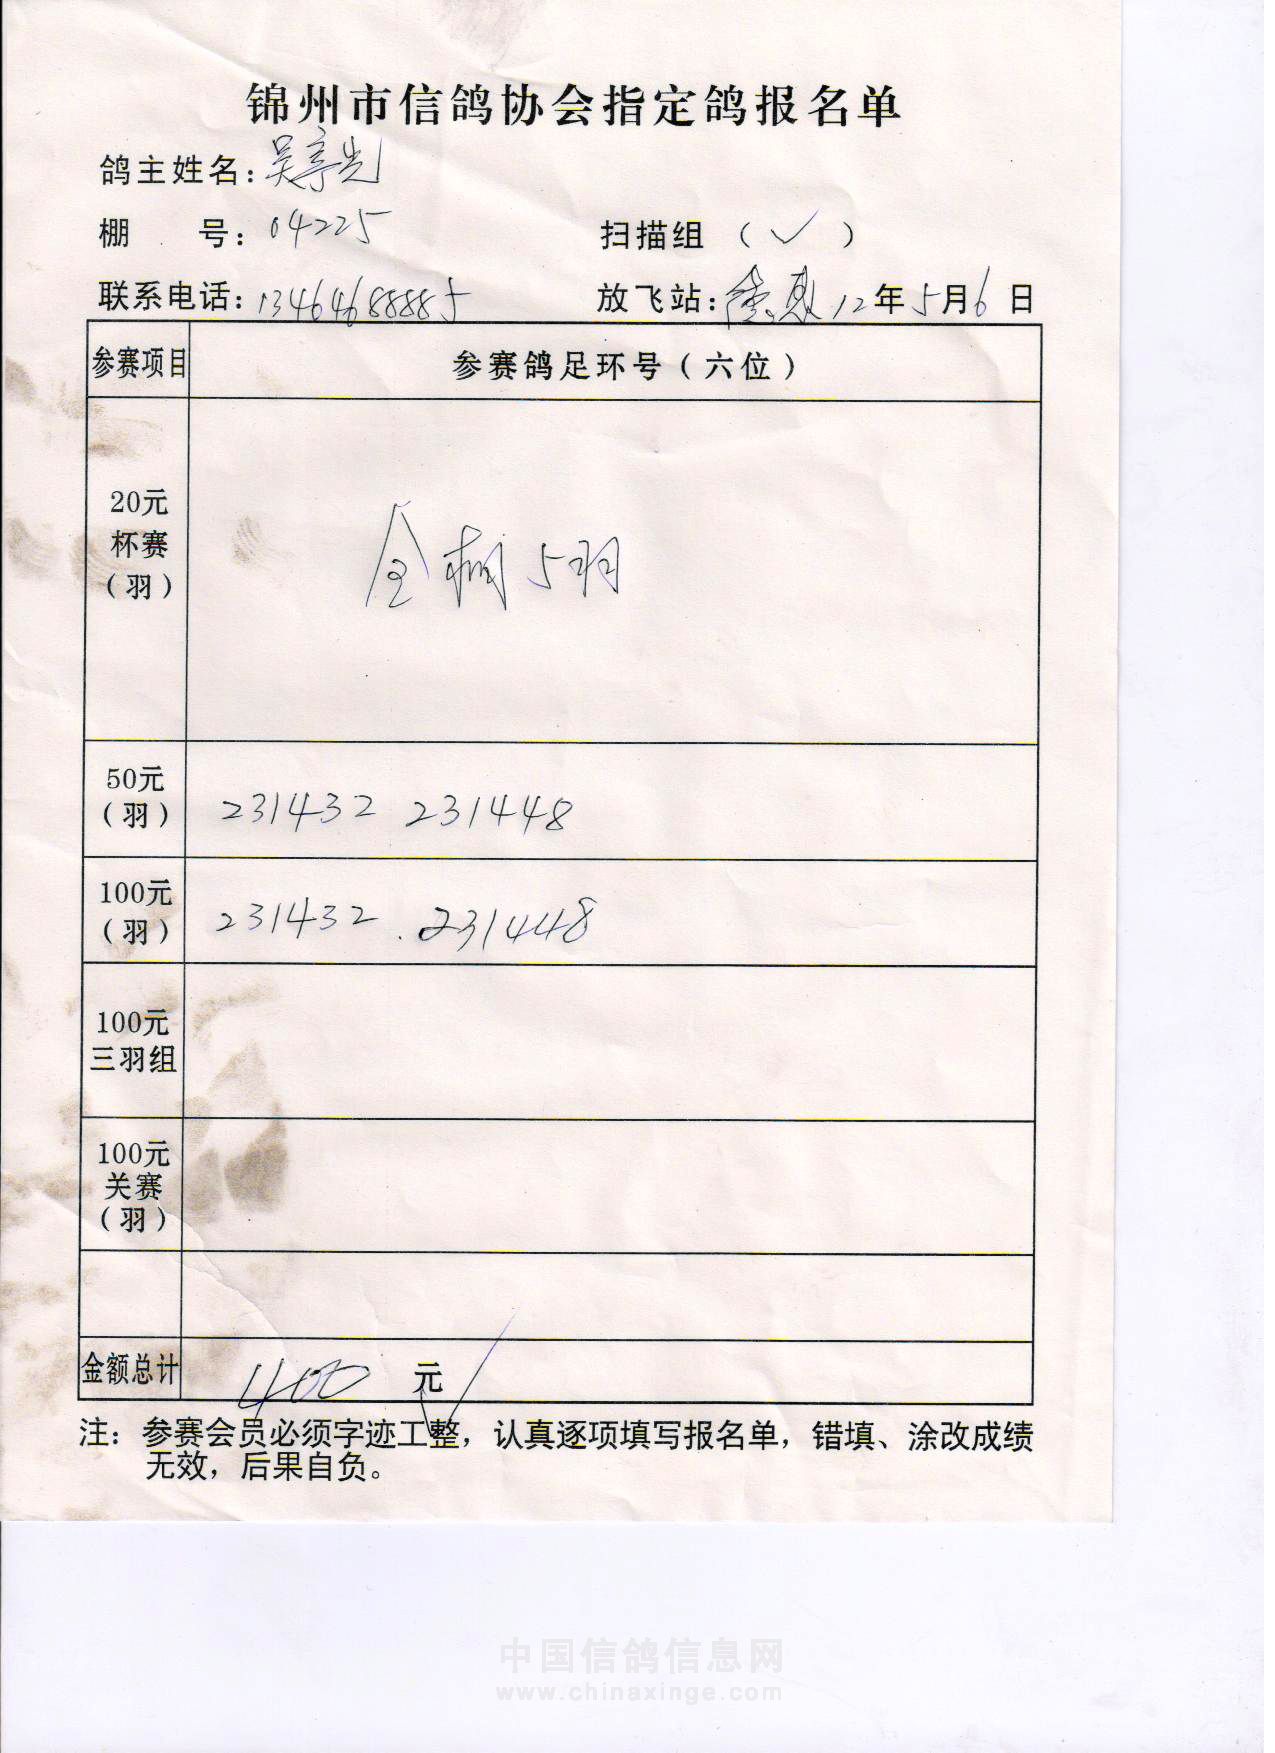 锦州市信鸽协会指定鸽报名单
鸽主姓名：吴享光
棚 号：04225 扫描组（✓）
联系电话：13464688885 放飞站： 12年5月6日
参赛项目 参赛鸽足环号（六位）
20元
杯赛
（羽）
全棚5羽
50元
（羽）
231432 231448
100元
（羽）
231432 . 231448
100元
三羽组
100元
关赛
（羽）
金额总计 400 元
注：参赛会员必须字迹工整，认真逐项填写报名单，错填、涂改成绩
无效，后果自负。
中国信鸽信息网
www.chinaxinge.com